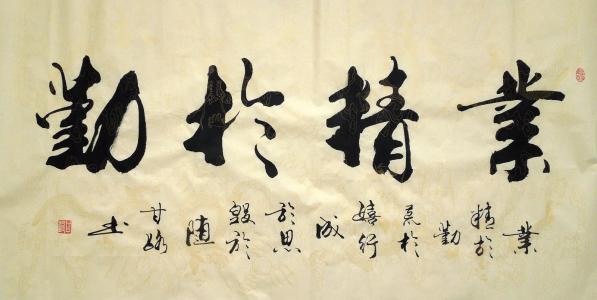 業精於勤
業精於勤荒於嬉行成於思毀於隨 甘 书